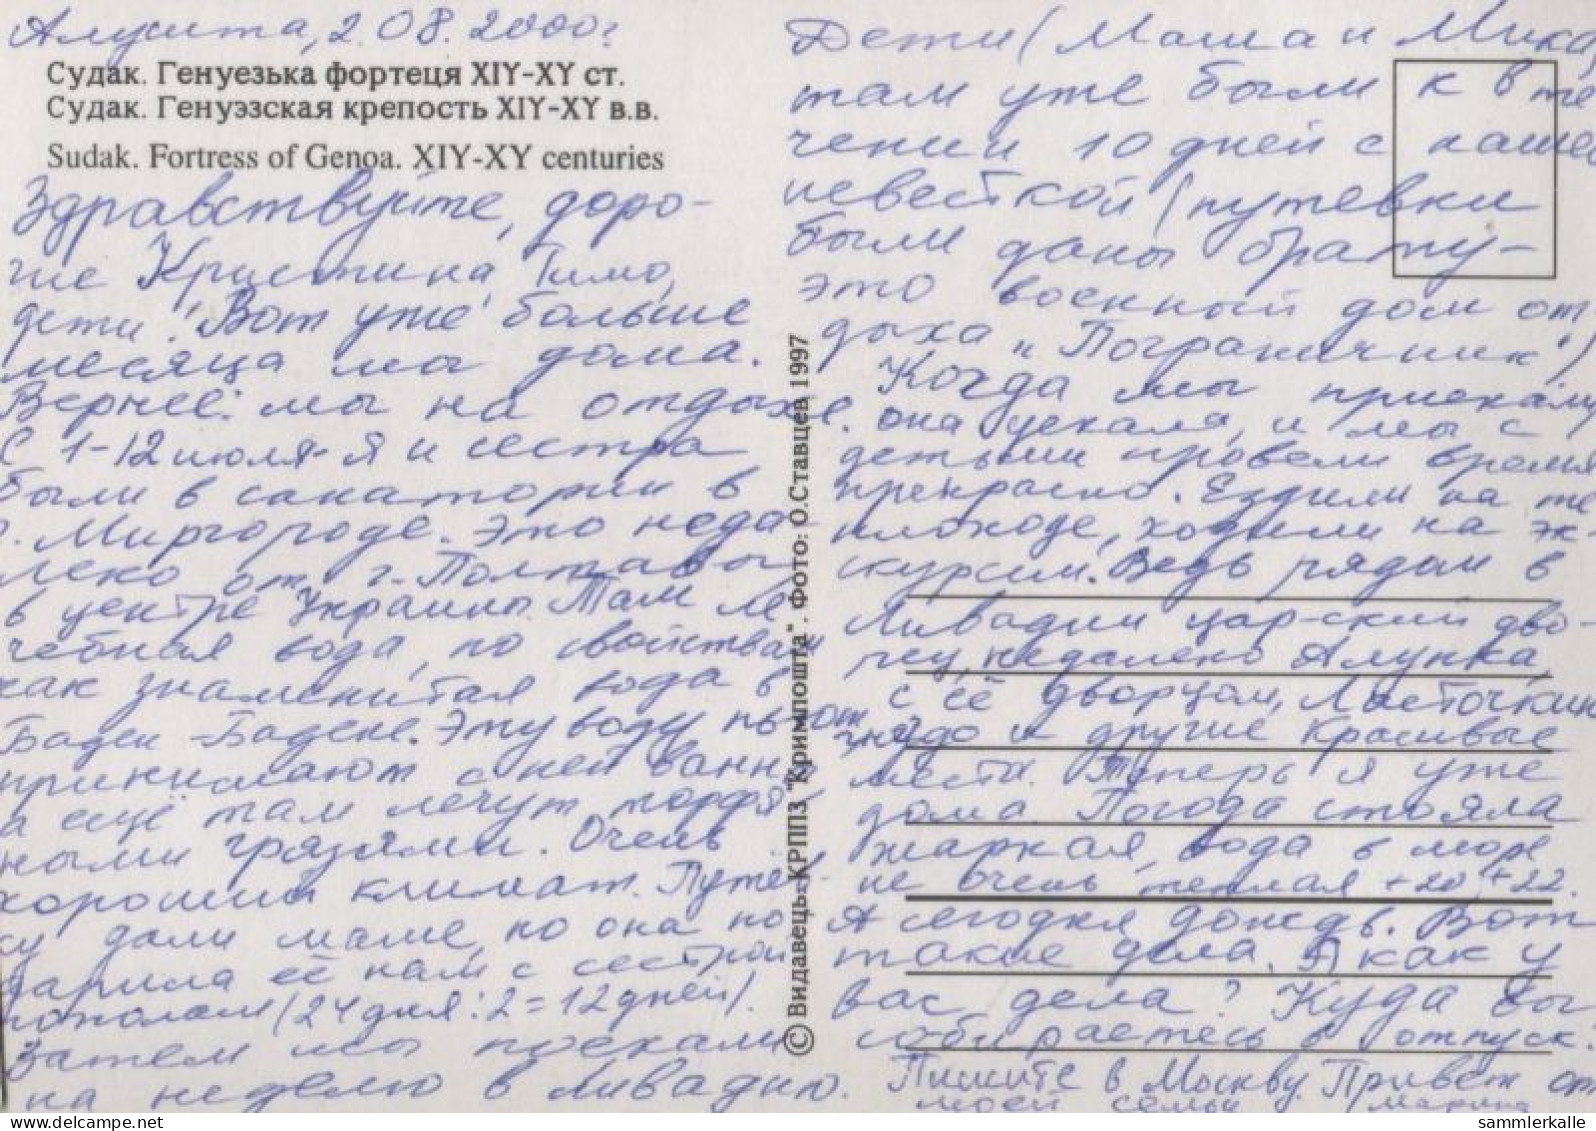 Алушта, 2.08.2000г.
Судак. Генуезька фортеця XIY-XY ст.
Судак. Генуэзская крепость XIY-XY в.в.
Sudak. Fortress of Genoa. XIY-XY centuries
Здравствуйте, доро-
гие Кристина, Тимо,
дети! Вот уже больше
месяца мы дома.
Вернее: мы на отдыхе.
С 1-12 июля я и сестра
были в санатории в
г. Миргороде. Это неда-
леко от г. Полтавы
в центре Украины. Там ле
чебная вода, по свойствам
как знаменитая вода в
Баден-Бадене. Эту воду пьют
принимают с ней ванны
а ещё там лечут торфя-
ными грязями. Очень
хороший климат. Путев-
ку дали маме, но она по
дарила её нам с сестрой
пополам (24 дня:2=12 дней).
Затем мы поехали
на неделю в Ливадию.
© Видавець КРППЗ "Кримпошта". Фото: О.Ставцев 1997
Дети (Маша и Мика)
там уже были к в те
чении 10 дней с нашей
невесткой (путевки
были даны брату-
это военный дом от
дыха "Пограничник")
Когда мы приехали,
она уехала, и мы с
детьми провели время
прекрасно. Ездили на те
плоходе, ходили на эк-
скурсии. Ведь рядом в
Ливадии царский дво-
рец, недалеко Алупка,
с её дворцом, Ласточкино
гнездо и другие красивые
места. Теперь я уже
дома. Погода стояла
жаркая, вода в море
не очень теплая +20 +22.
А сегодня дождь. Вот
такие дела. А как у
вас дела? Куда вы
собираетесь в отпуск.
Пишите в Москву. Привет от
моей семьи Марина
sammlerkalle
delcampe.net